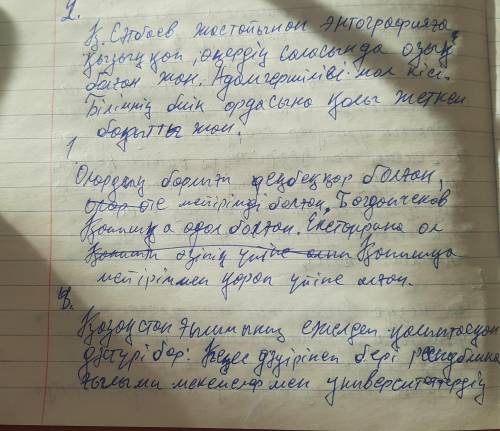 2.
Қ. Сәтбаев жастайынан этографияға
қызыққан, өнердің саласында озық
болған жан. Адамгершілігі мол кісі.
Білімнің биік ордасына қолы жеткен
бақытты жан.
1
Олардың барлығы еңбекқор болған,
мейірімді болған, Богданчиков
Қанышқа адал болған. Екатерина ол
Қанышқа
мейіріммен қарап үйіне алған.
3.
Қазақстан ғылымының ежелден қалыптасқан
дәстүрі бар: Кеңес дәуірінен бері республика
ғылыми мекемелер мен университеттердің